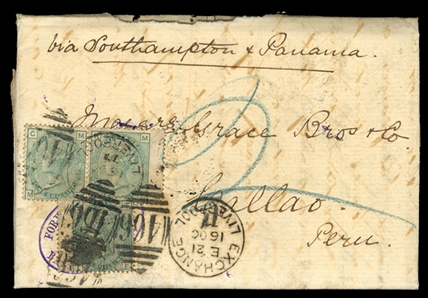 via Southampton & Panama.
Messrs Grace Bros & Co.
Callao.
Peru.
2
LIVERPOOL
466
EXCHANGE
E 21
16 OC
LIVERPOOL
466
FOR